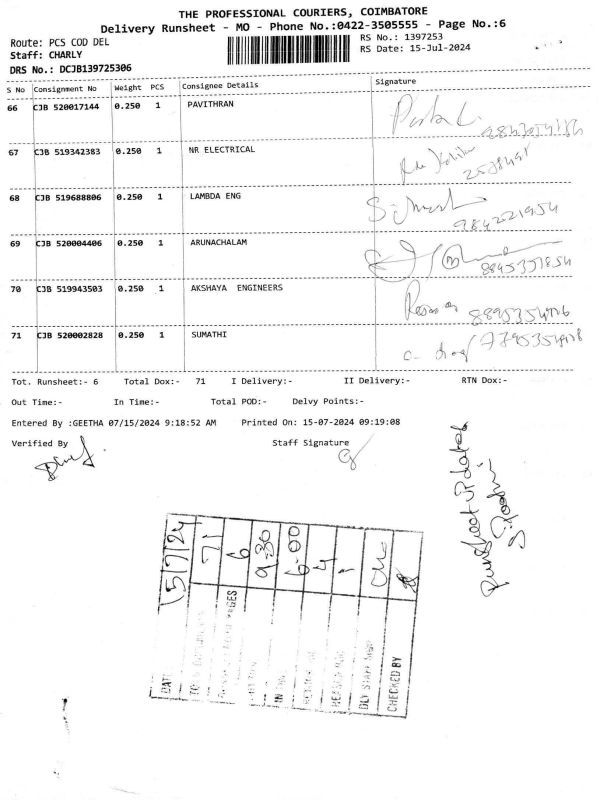 THE PROFESSIONAL COURIERS, COIMBATORE
Delivery Runsheet - MO - Phone No.:0422-3505555 - Page No.:6
Route: PCS COD DEL
RS No.: 1397253
Staff: CHARLY
RS Date: 15-Jul-2024
DRS No.: DCJB139725306
S No Consignment No Weight PCS Consignee Details Signature
66 CJB 520017144 0.250 1 PAVITHRAN
67 CJB 519342383 0.250 1 NR ELECTRICAL
68 CJB 519688806 0.250 1 LAMBDA ENG
9842221954
69 CJB 520004406 0.250 1 ARUNACHALAM
70 CJB 519943503 0.250 1 AKSHAYA ENGINEERS
71 CJB 520002828 0.250 1 SUMATHI
Tot. Runsheet:- 6 Total Dox:- 71 I Delivery:- II Delivery:- RTN Dox:-
Out Time:- In Time:- Total POD:- Delvy Points:-
Entered By :GEETHA 07/15/2024 9:18:52 AM Printed On: 15-07-2024 09:19:08
Verified By Staff Signature
Runsheet updated
DATE 15/7/24
71
PAGES 6
9.30
6-00
4
1
DLY STAFF SIGN
CHECKED BY